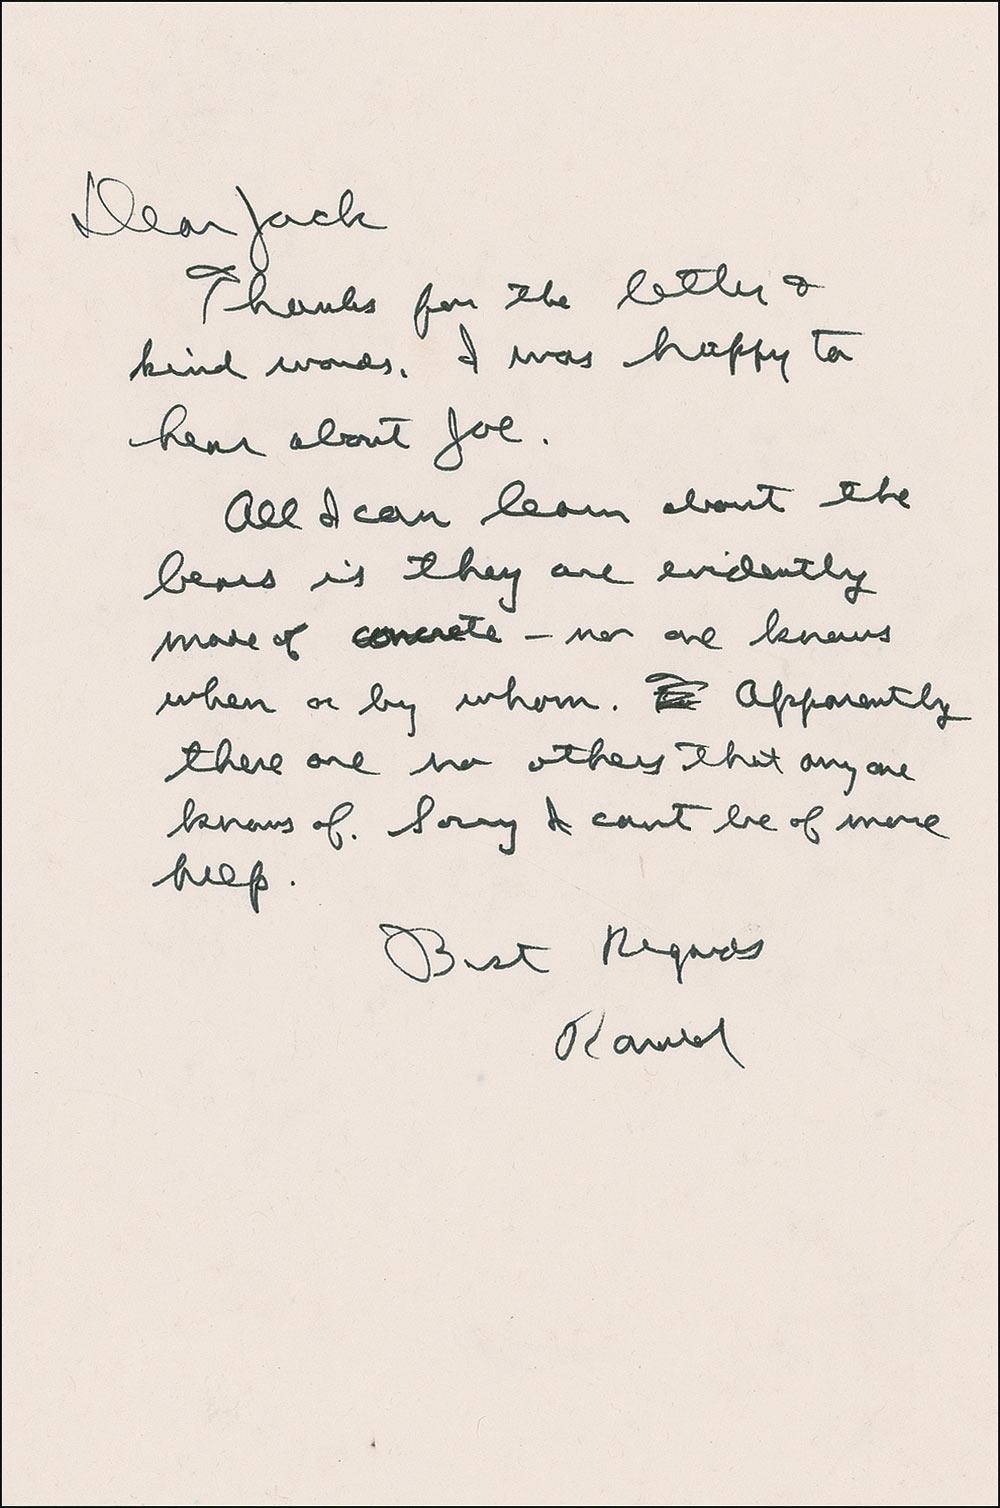 Dear Jack
Thanks for the letter &
kind words. I was happy to
hear about Joe.
All I can learn about the
bears is they are evidently
made of concrete – no one knows
when or by whom. Apparently
there are no others that any one
knows of. Sorry I can't be of more
help.
Best Regards